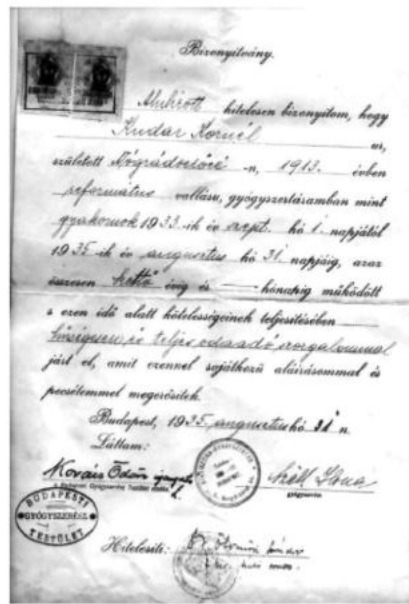 Bizonyítvány.
Alulírott hitelesen bizonyítom, hogy
Kudar Kornél úr,
született -n, 1913. évben
református vallású, gyógyszertáramban mint
gyakornok 1933-ik év szept. hó 1. napjától
1935-ik év augusztus hó 31. napjáig, azaz
összesen kettő évig és — hónapig működött
s ezen idő alatt kötelességeinek teljesítésében
hűségesen és teljes odaadó szorgalommal
járt el, amit ezennel sajátkezű aláírásommal és
pecsétemmel megerősítek.
Budapest, 1935. augusztus hó 31 n.
Láttam:
Kovács Ödön
Széll Ilona
gyógyszerész
BUDAPESTI
GYÓGYSZERÉSZ
TESTÜLET
Hitelesíti: